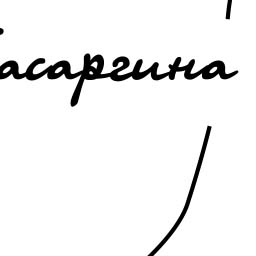 асаргина